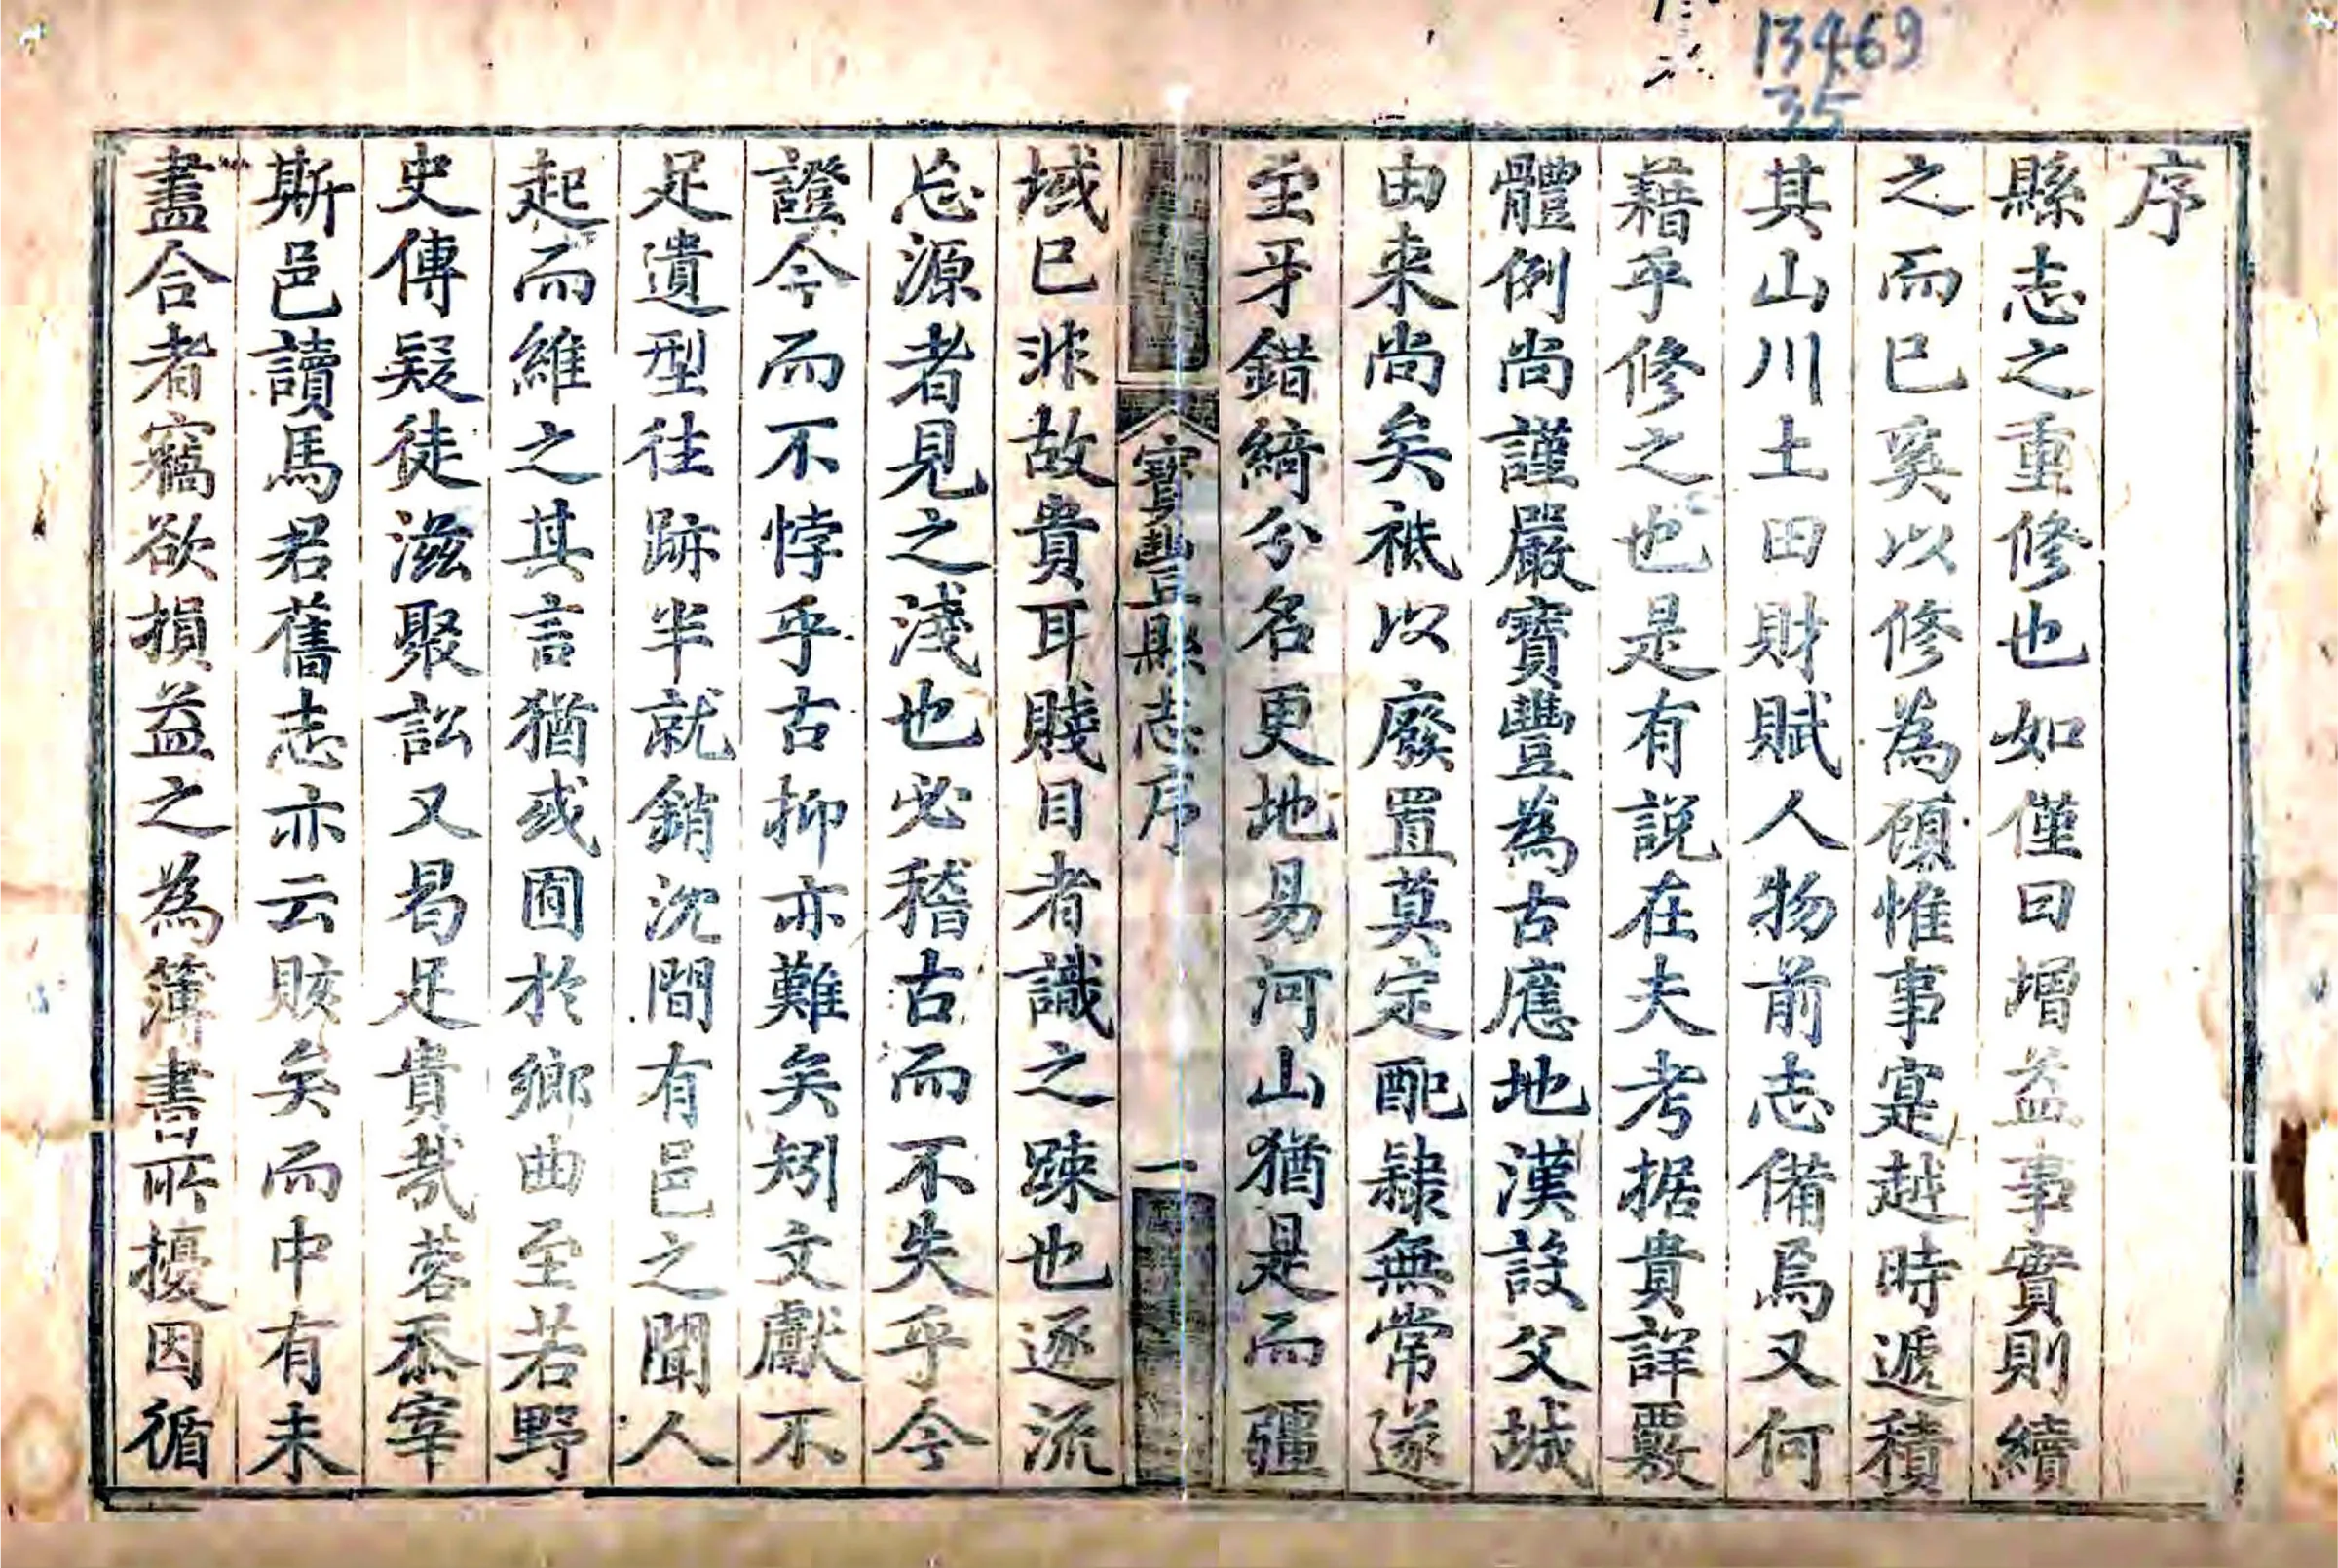 13469
35
序
縣志之重修也如僅曰增益事實則續
之而已奚以修為顧惟事寔越時遞積
其山川土田財賦人物前志備焉又何
藉乎修之也是有説在夫考据貴詳覈
體例尚謹嚴寶豐為古應地漢設父城
由来尚矣祗以廢置莫定配隸無常遂
至牙錯綺分名更地易河山猶是而疆
寶豐縣志序
一
域已非故貴耳賤目者識之踈也逐流
忘源者見之淺也必稽古而不失乎今
證今而不悖乎古抑亦難矣矧文獻不
足遺型往跡半就銷沈間有邑之聞人
起而維之其言猶或囿於鄉曲至若野
史傳疑徒滋聚訟又曷足貴哉蓉忝宰
斯邑讀馬君舊志亦云賅矣而中有未
盡合者竊欲損益之為簿書所擾因循